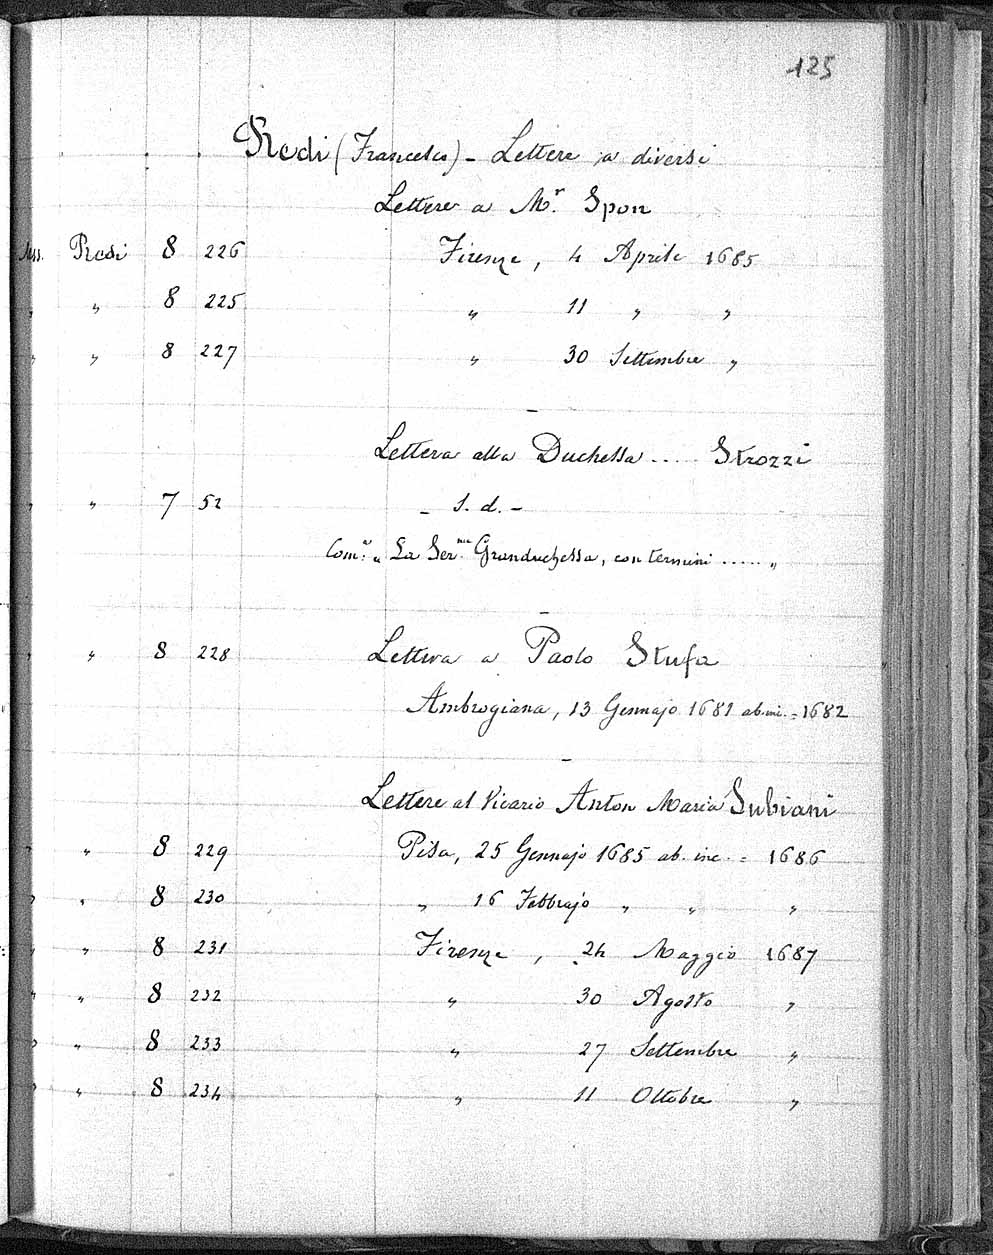 125
Redi (Francesco) - Lettere a diversi
Lettere a Mr. Spon
Mss. Redi 8 226 Firenze, 4 Aprile 1685
„ „ 8 225 „ 11 „ „
„ „ 8 227 „ 30 Settembre „
Lettera alla Duchessa ..... Strozzi
„ „ 7 52 - S. d. -
Com.a „ La Ser.ma Granduchessa, con termini ..... „
„ „ 8 228 Lettera a Paolo Stufa
Ambrogiana, 13 Gennajo 1681 ab. inc. = 1682
Lettere al Vicario Anton Maria Subiani
„ „ 8 229 Pisa, 25 Gennajo 1685 ab. inc. = 1686
„ „ 8 230 „ 16 Febbrajo „ „ „
„ „ 8 231 Firenze, 24 Maggio 1687
„ „ 8 232 „ 30 Agosto „
„ „ 8 233 „ 27 Settembre „
„ „ 8 234 „ 11 Ottobre „